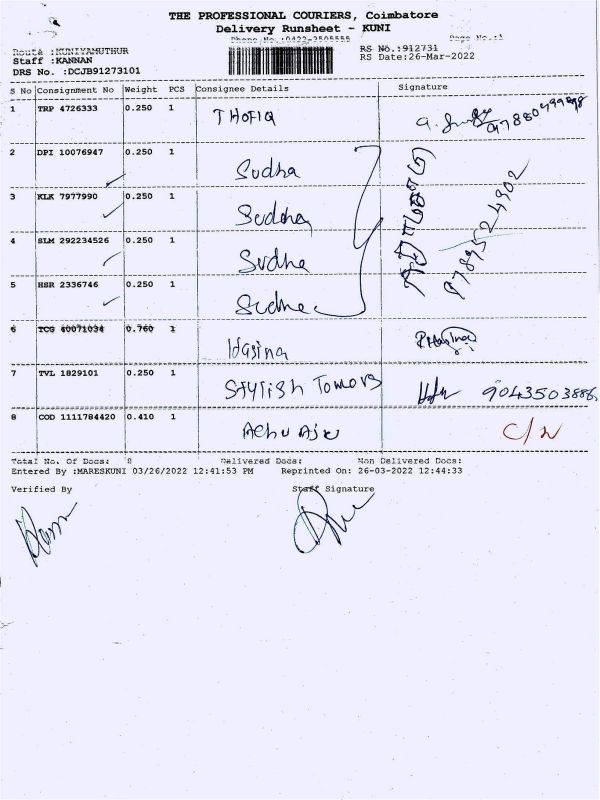 THE PROFESSIONAL COURIERS, Coimbatore
Delivery Runsheet - KUNI
Phone No.:0422-3505555 Page No.:1
Route :KUNIYAMUTHUR RS No.:912731
Staff :KANNAN RS Date:26-Mar-2022
DRS No. :DCJB91273101
S No Consignment No Weight PCS Consignee Details Signature
1 TRP 4726333 0.250 1 THOFIQ
2 DPI 10076947 0.250 1 Sudha
3 KLK 7977990 0.250 1 Sudha
4 SLM 292234526 0.250 1 Sudha
5 HSR 2336746 0.250 1 Sudha
6 TCG 40071034 0.760 1 Hasina
7 TVL 1829101 0.250 1 Stylish Tomors 9043503886
8 COD 1111784420 0.410 1 Achu Aju C/N
Total No. Of Docs: 8 Delivered Docs: Non Delivered Docs:
Entered By :MARESKUNI 03/26/2022 12:41:53 PM Reprinted On: 26-03-2022 12:44:33
Verified By Staff Signature